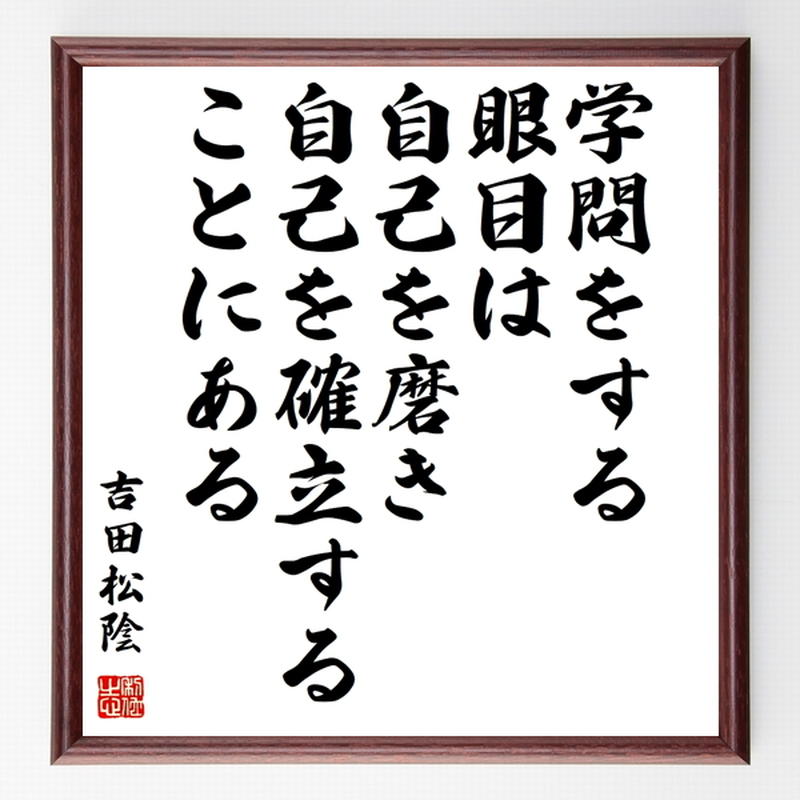 学問をする
眼目は
自己を磨き
自己を確立する
ことにある
吉田松陰